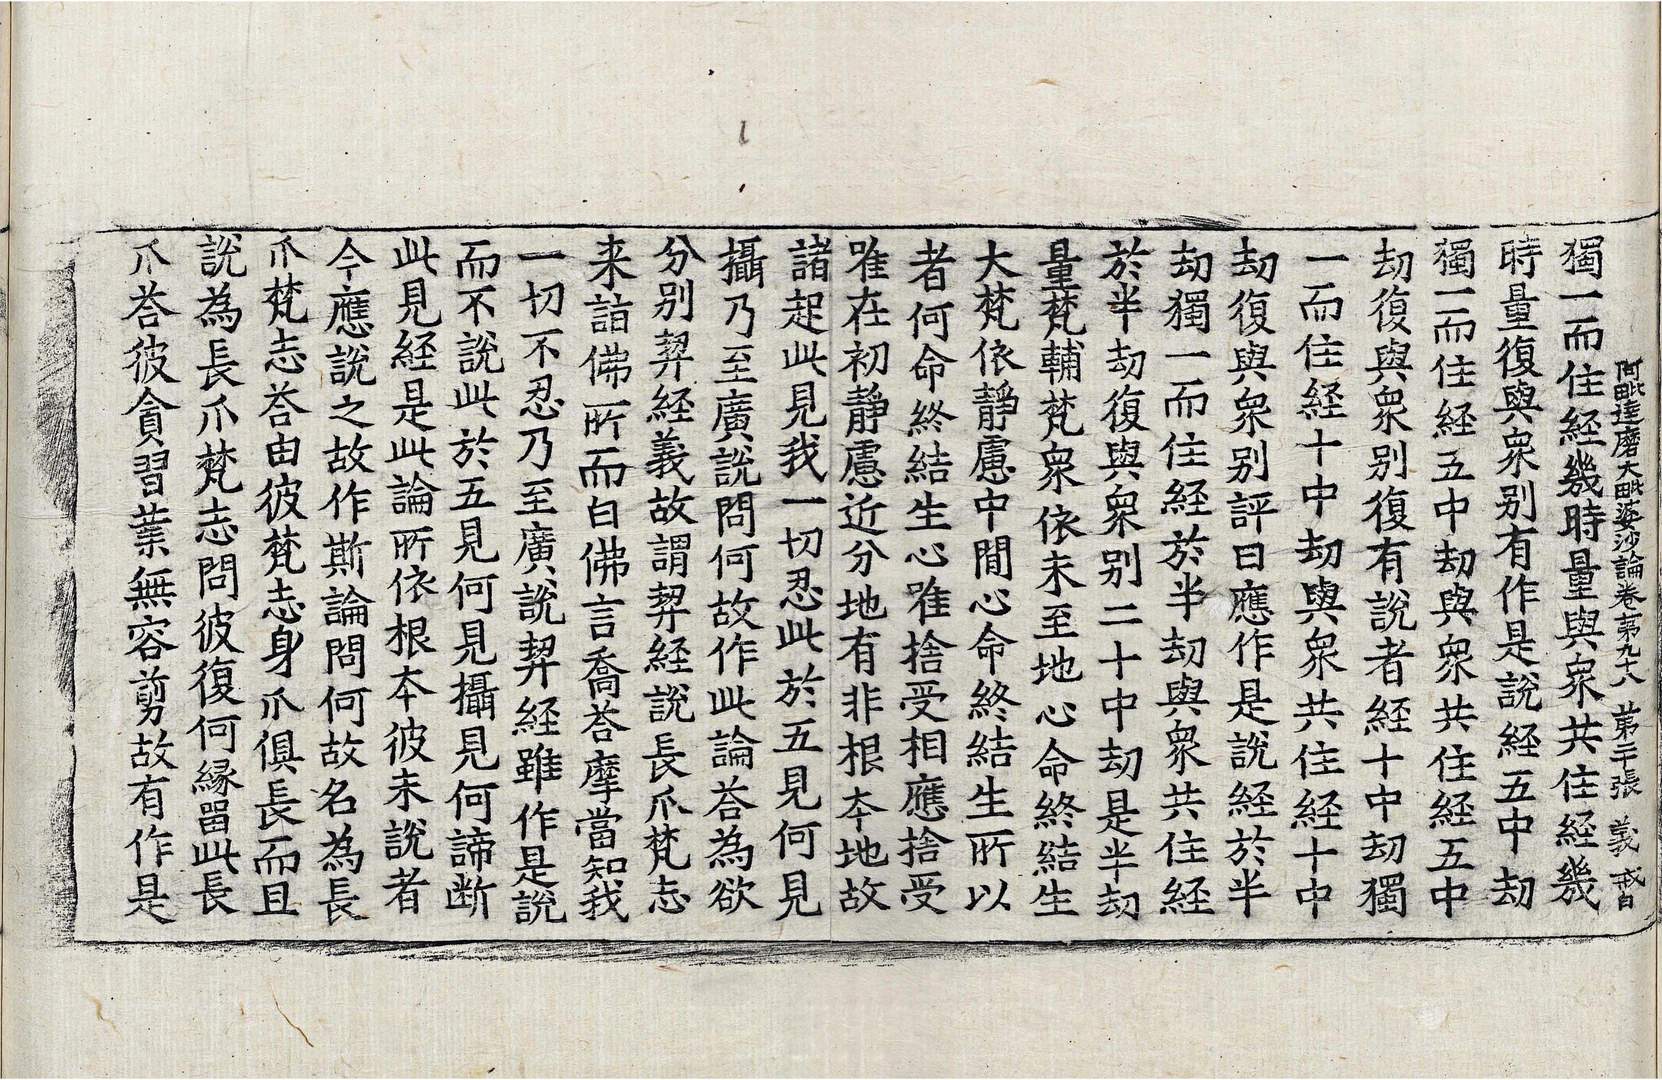 阿毗達磨大毗婆沙論卷第九十八 第二十張 義
獨一而住經幾時量與衆共住經幾
時量復與衆別有作是說經五中劫
獨一而住經五中劫與衆共住經五中
劫復與衆别復有說者經十中劫獨
一而住經十中劫與衆共住經十中
劫復與衆别評曰應作是說經於半
劫獨一而住經於半劫與衆共住經
於半劫復與衆别二十中劫是半劫
量梵輔梵衆依未至地心命終結生
大梵依靜慮中閒心命終結生所以
者何命終結生心唯捨受相應捨受
唯在初靜慮近分地有非根本地故
諸起此見我一切忍此於五見何見
攝乃至廣說問何故作此論荅為欲
分别契經義故謂契經說長爪梵志
来詣佛所而白佛言喬荅摩當知我
一切不忍乃至廣說契經雖作是說
而不說此於五見何見攝見何諦断
此見經是此論所依根本彼未說者
今應說之故作斯論問何故名為長
爪梵志荅由彼梵志身爪俱長而且
說為長爪梵志問彼復何縁留此長
爪荅彼貪習業無容剪故有作是